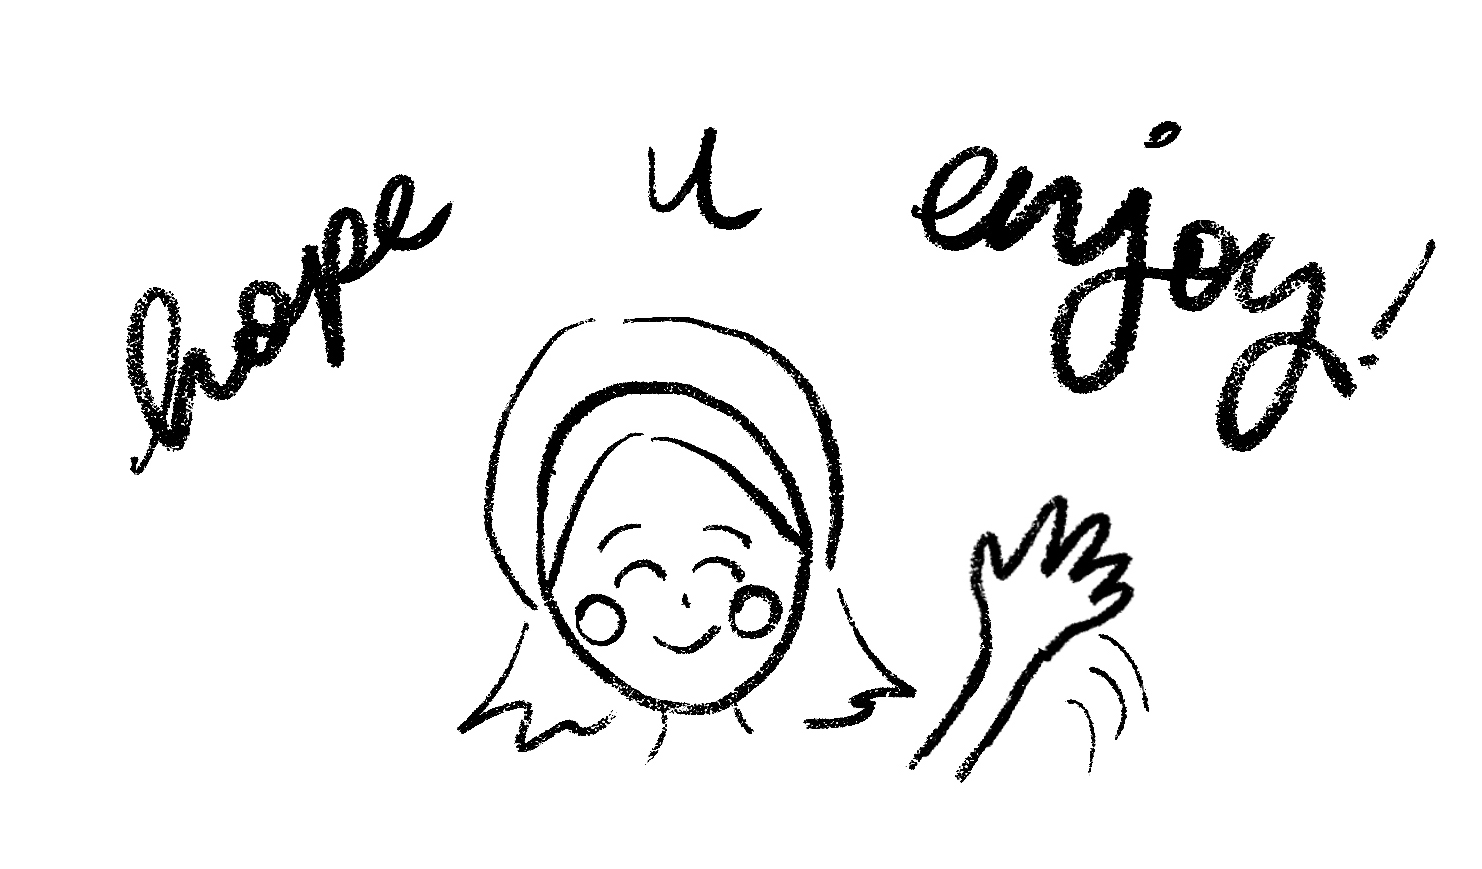 hope u enjoy!